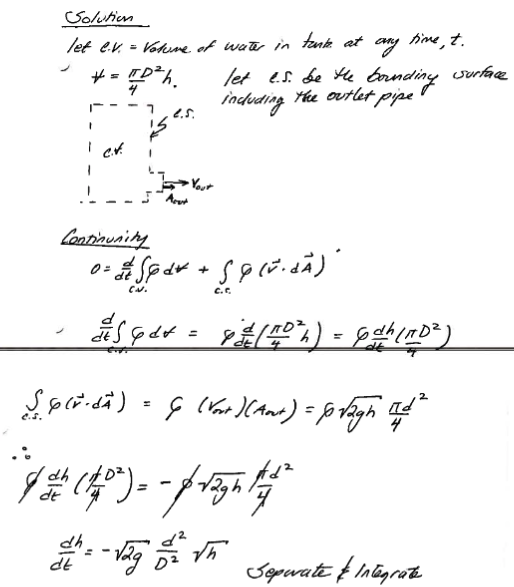 Solution
let C.V. = Volume of water in tank at any time, t.
V = πD²/4 h.
let c.s. be the bounding surface
including the outlet pipe
c.s.
c.v.
Vout
Aout
Continunity
0 = d/dt ∫c.v. ρ dV + ∫c.s. ρ (v⃗·dA⃗)
d/dt ∫c.v. ρ dV = ρ d/dt (πD²/4 h) = ρ dh/dt (πD²/4)
∫c.s. ρ (v⃗·dA⃗) = ρ (Vout)(Aout) = ρ √2gh πd²/4
∴
ρ dh/dt (πD²/4) = - ρ √2gh πd²/4
dh/dt = - √2g d²/D² √h
Separate & Integrate